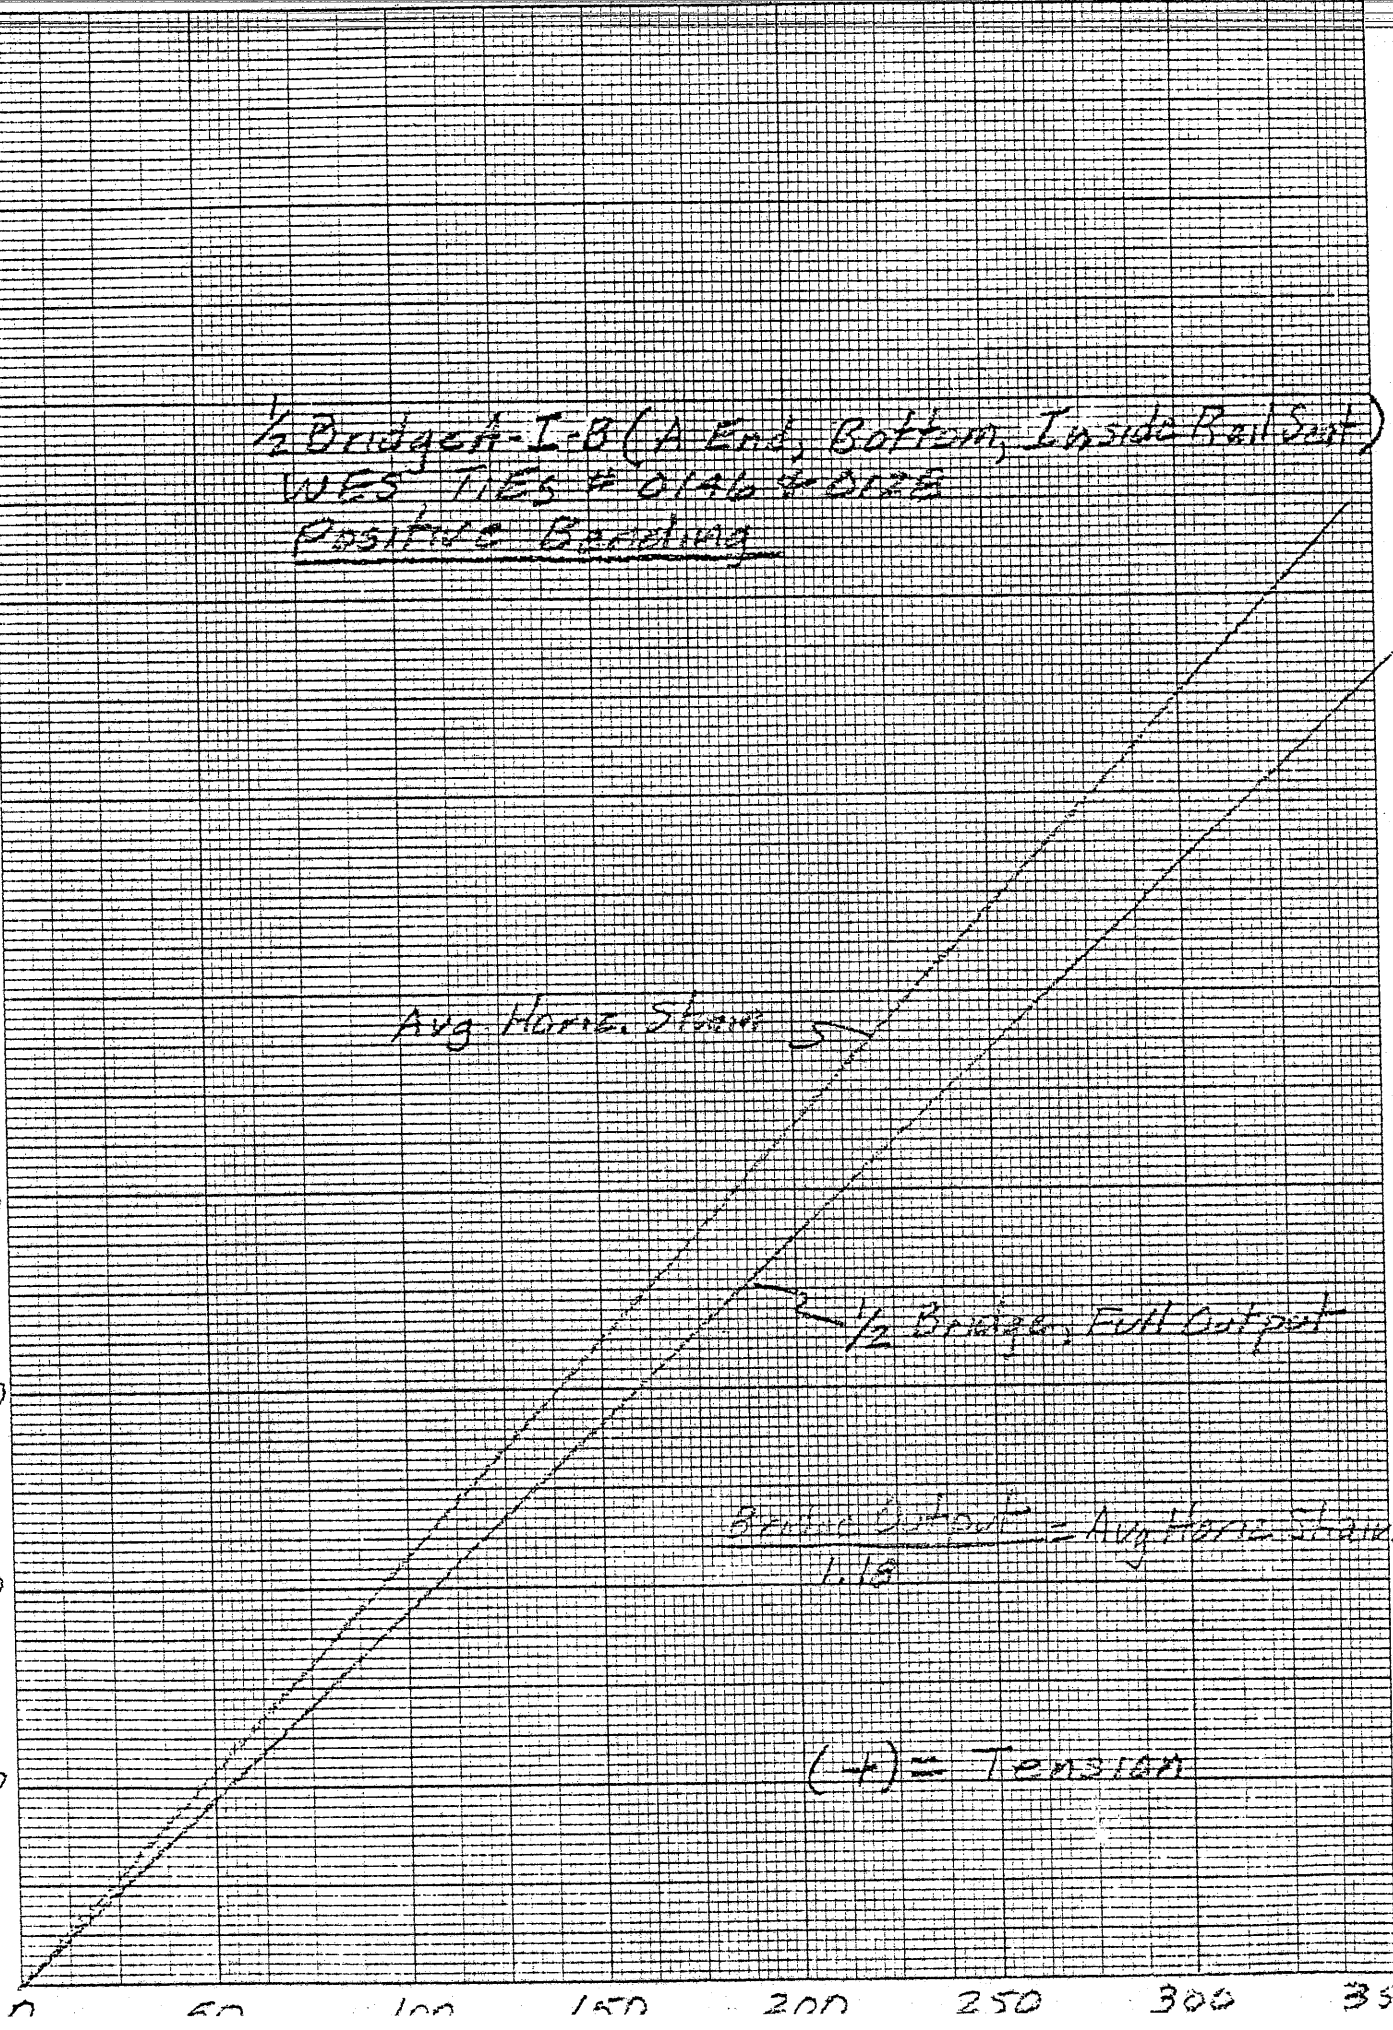 1/2 Bridge A-I-B (A End, Bottom, Inside Rail Seat)
WES TIES # 0146 & 0128
Positive Bending
Avg Horiz. Strain
1/2 Bridge, Full Output
Bridge Output = Avg Horiz Strain
1.18
(+) = Tension
0 50 100 150 200 250 300 35